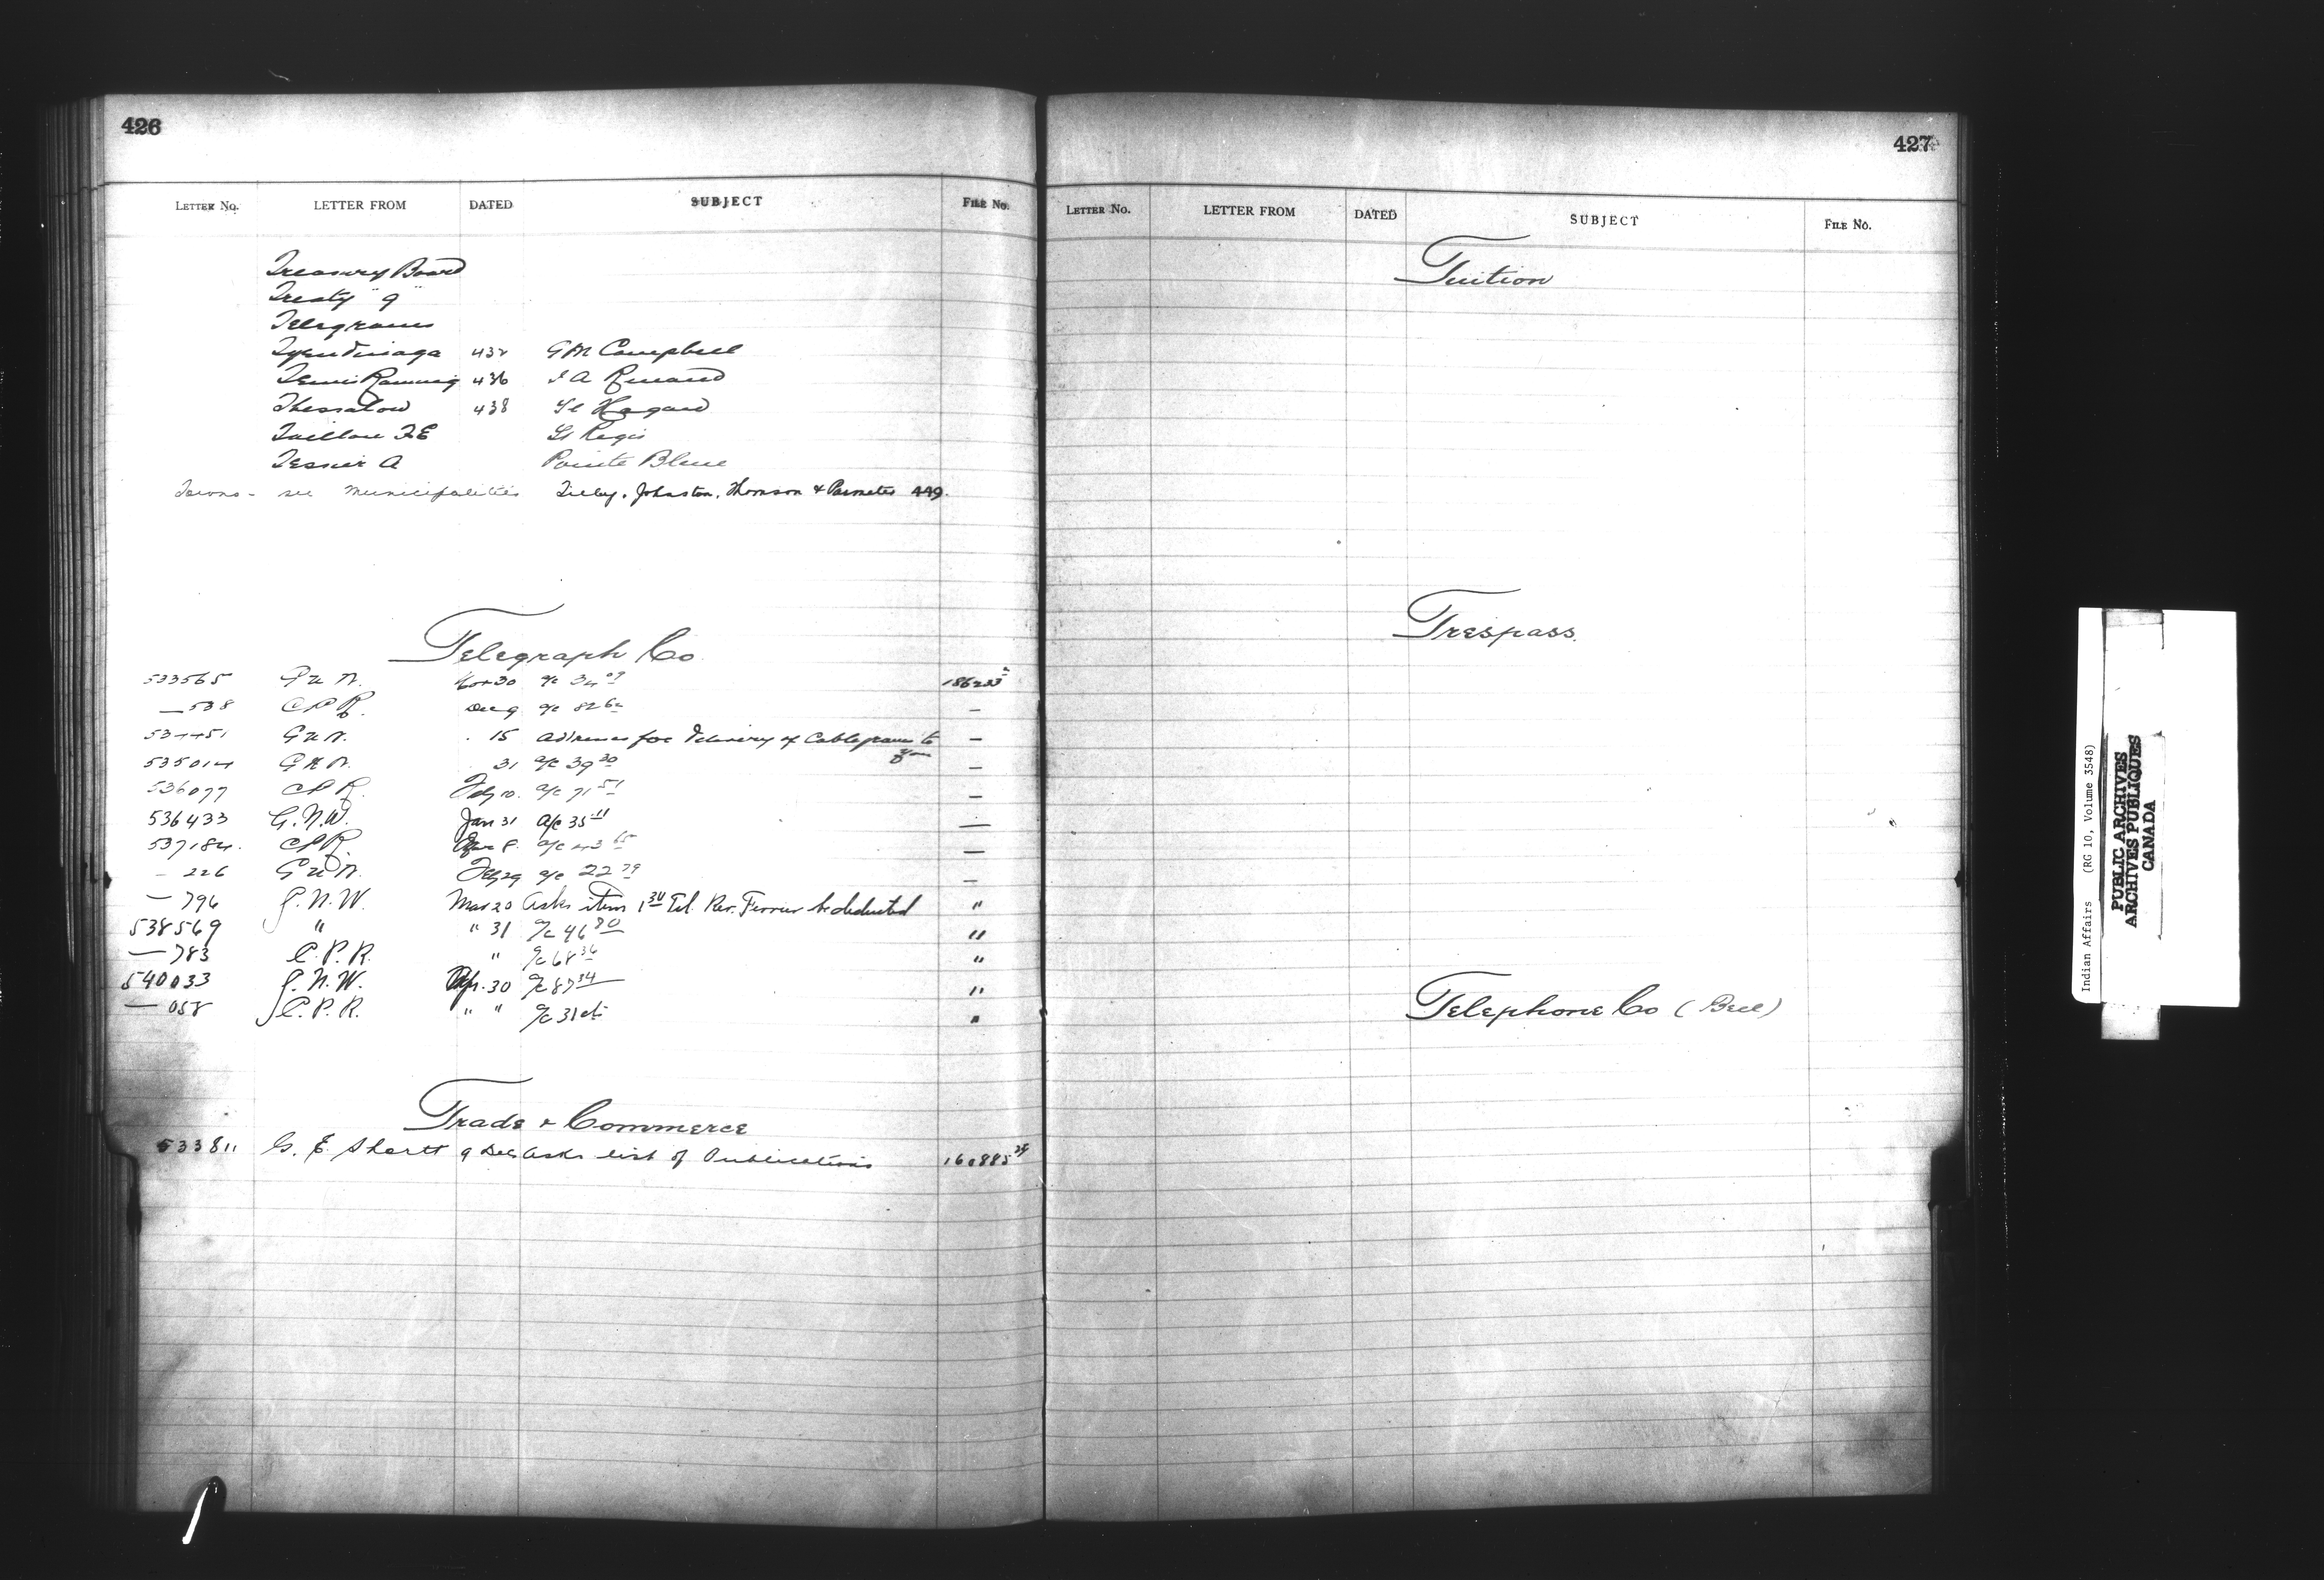 426
LETTER No. LETTER FROM DATED SUBJECT FILE No.
Treasury Board
Treaty "9"
Telegrams
Tyendinaga 432 G M Campbell
Temiskaming 436 J A Renaud
Thessalon 438 Hagan
Taillon F E St Regis
Tessier A Pointe Bleue
Towns - see Municipalities Tilley, Johnston, Thomson & Parmeter 449.
Telegraph Co
533565 G N W. Nov 30 a/c 34
— 538 C P R. Dec 9 a/c 82
G N W. 15 Addresses for delivery of Cablegrams to
535014 G N W. 31 a/c 39 20 —
536077 C P R. Feby 10. a/c 71 51 —
536433 G.N.W. Jan 31 a/c 35 11 —
537184. C P R. 8. a/c 43 —
— 226 G N W. Feby 29 a/c 22 79 —
— 796 G.N.W. Mar 20 Asks item 1 30 Tel. Rev. Ferrier be deducted "
538569 " " 31 a/c 46 80 "
— 783 C.P.R. " a/c 68 36 "
540033 G.N.W. Apr. 30 a/c 87 34 "
— 058 C.P.R. " " a/c 31 cts "
Trade & Commerce
533811 G. E. Shortt 9 Dec asks list of Publications 160885
427
LETTER No. LETTER FROM DATED SUBJECT FILE No.
Tuition
Trespass.
Telephone Co (Bell)
Indian Affairs (RG 10, Volume 3548)
PUBLIC ARCHIVES
ARCHIVES PUBLIQUES
CANADA